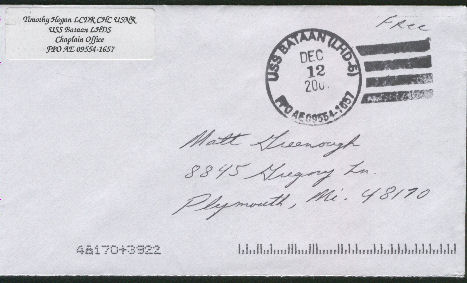 Timothy Hogan LCDR CHC USNR
USS Bataan LHD5
Chaplain Office
FPO AE 09554-1657
Free
USS BATAAN (LHD-5)
DEC
12
200
FPO AE 09554-1657
Matt Greenough
8845 Gregory Ln.
Plymouth, Mi. 48170
48170+3922